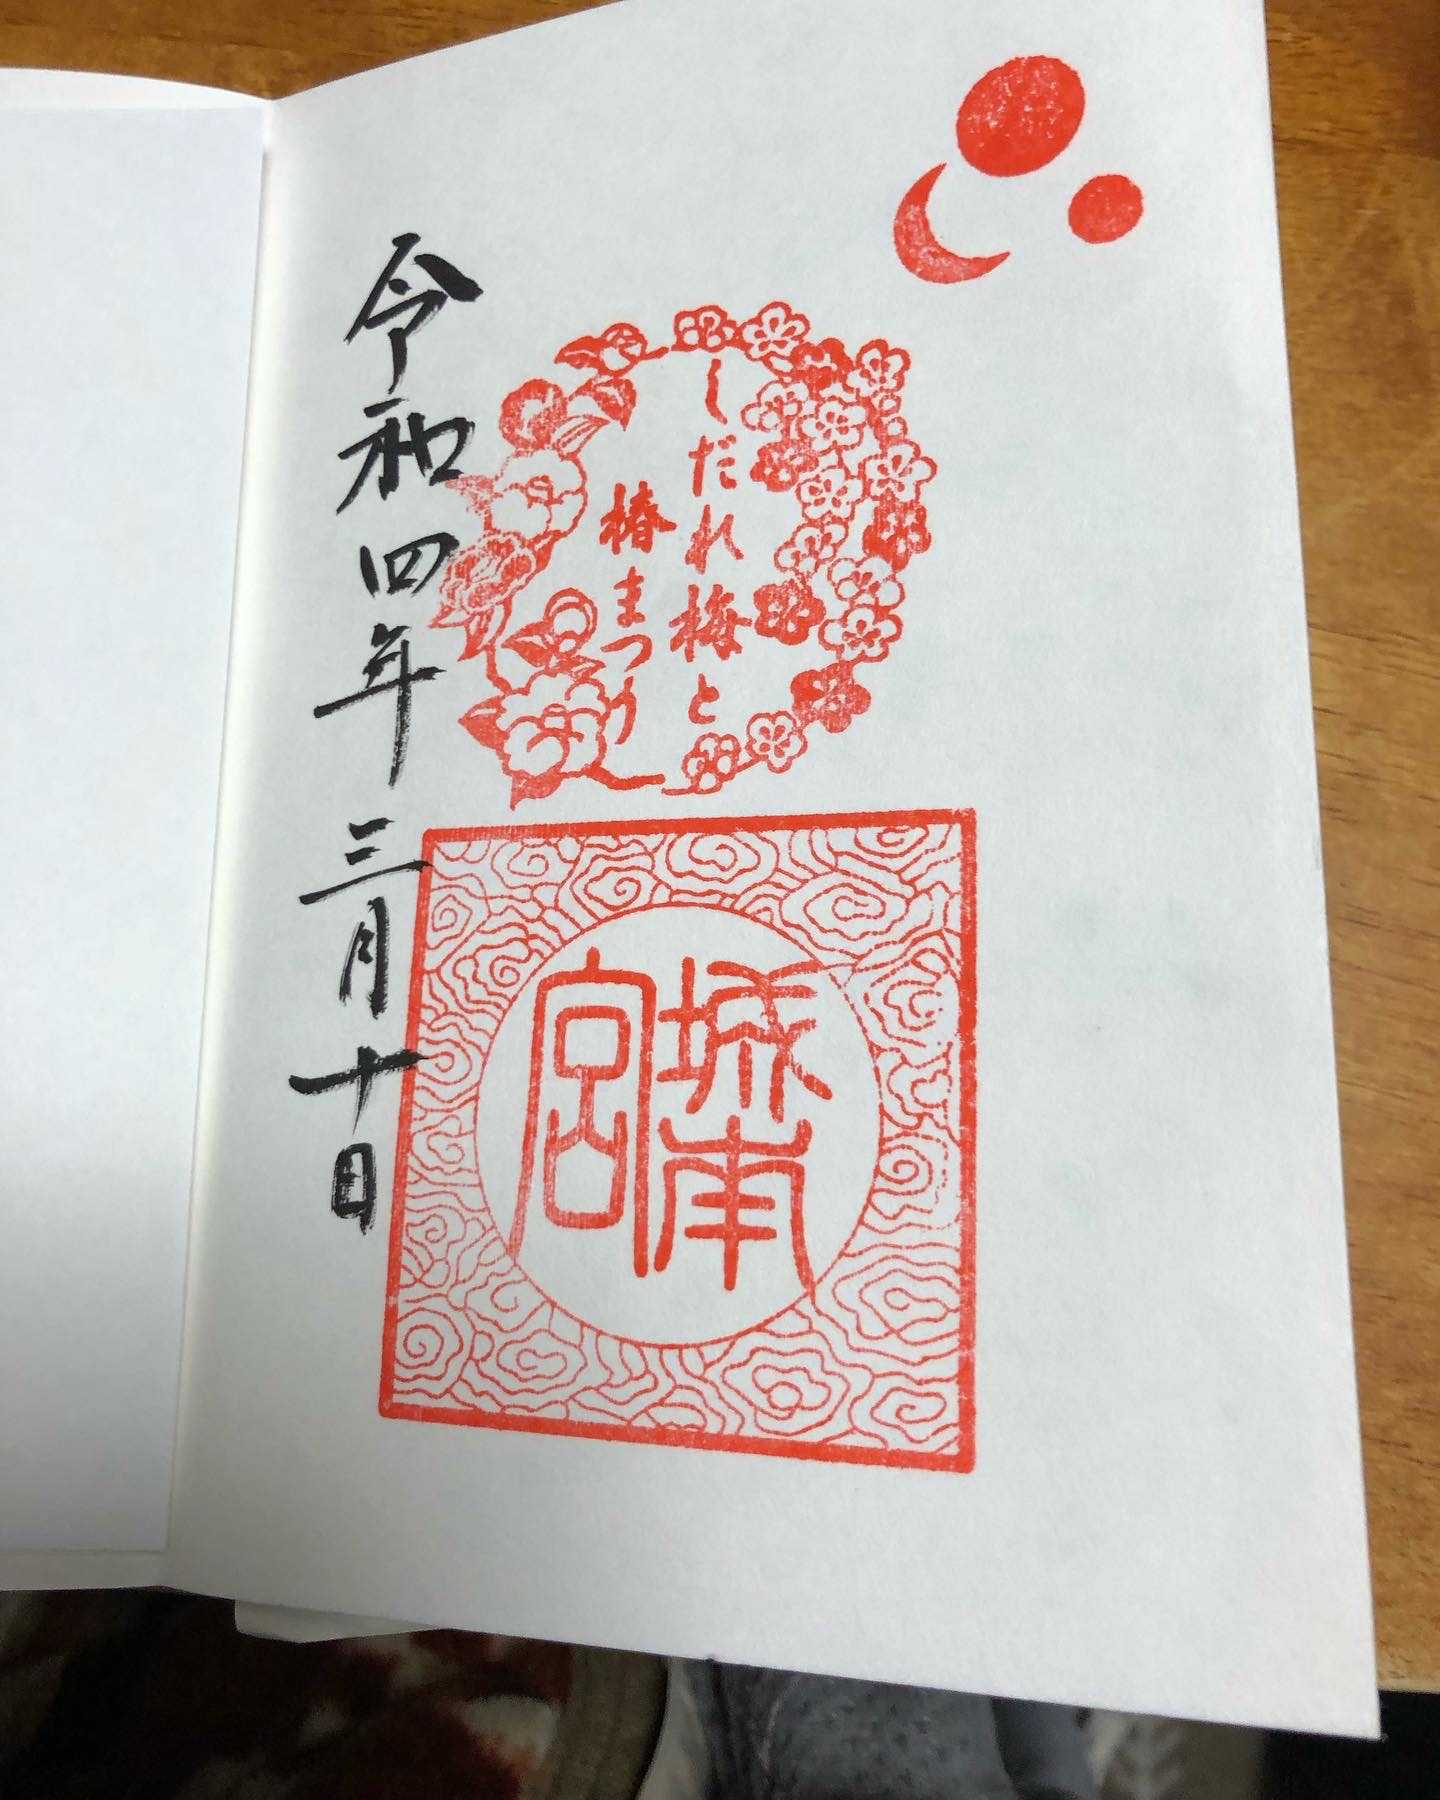 しだれ梅と
椿まつり
城南
宮
令和四年三月十日